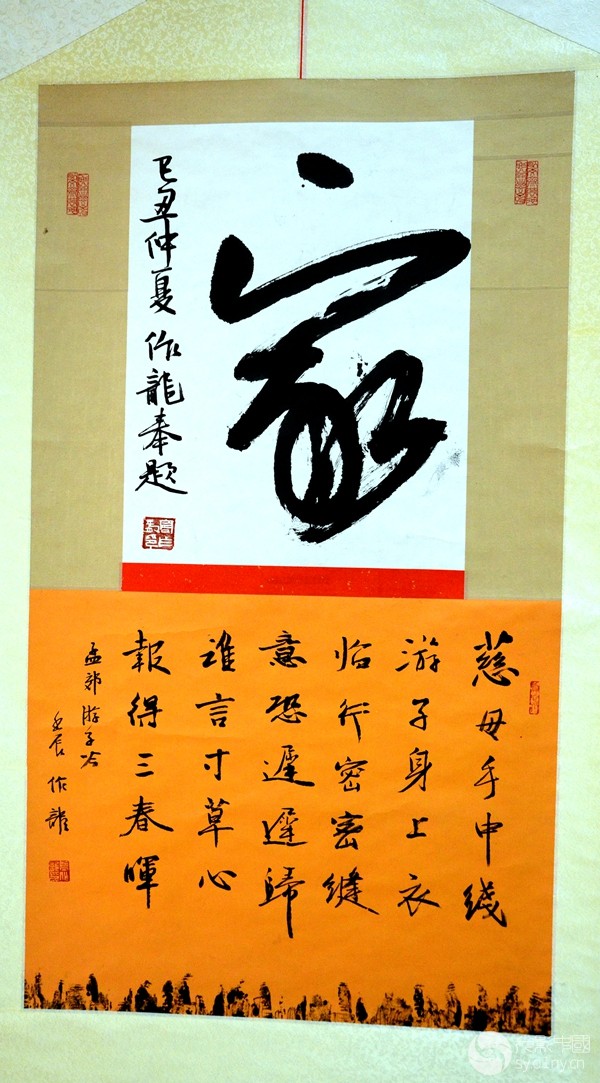 家
己丑仲夏 作龍奉題
慈母手中线
游子身上衣
临行密密缝
意恐遲遲歸
谁言寸草心
報得三春暉
孟郊游子吟
壬辰 作龍